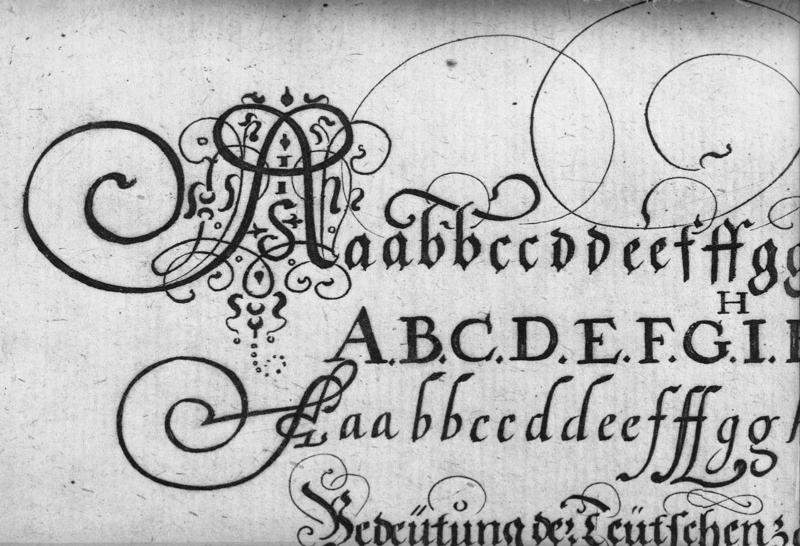 Aaabbccddeefffgg
A.B.C.D.E.F.G.H.I.
Aaabbccddeefffggh
Bedeütung der Teütschen